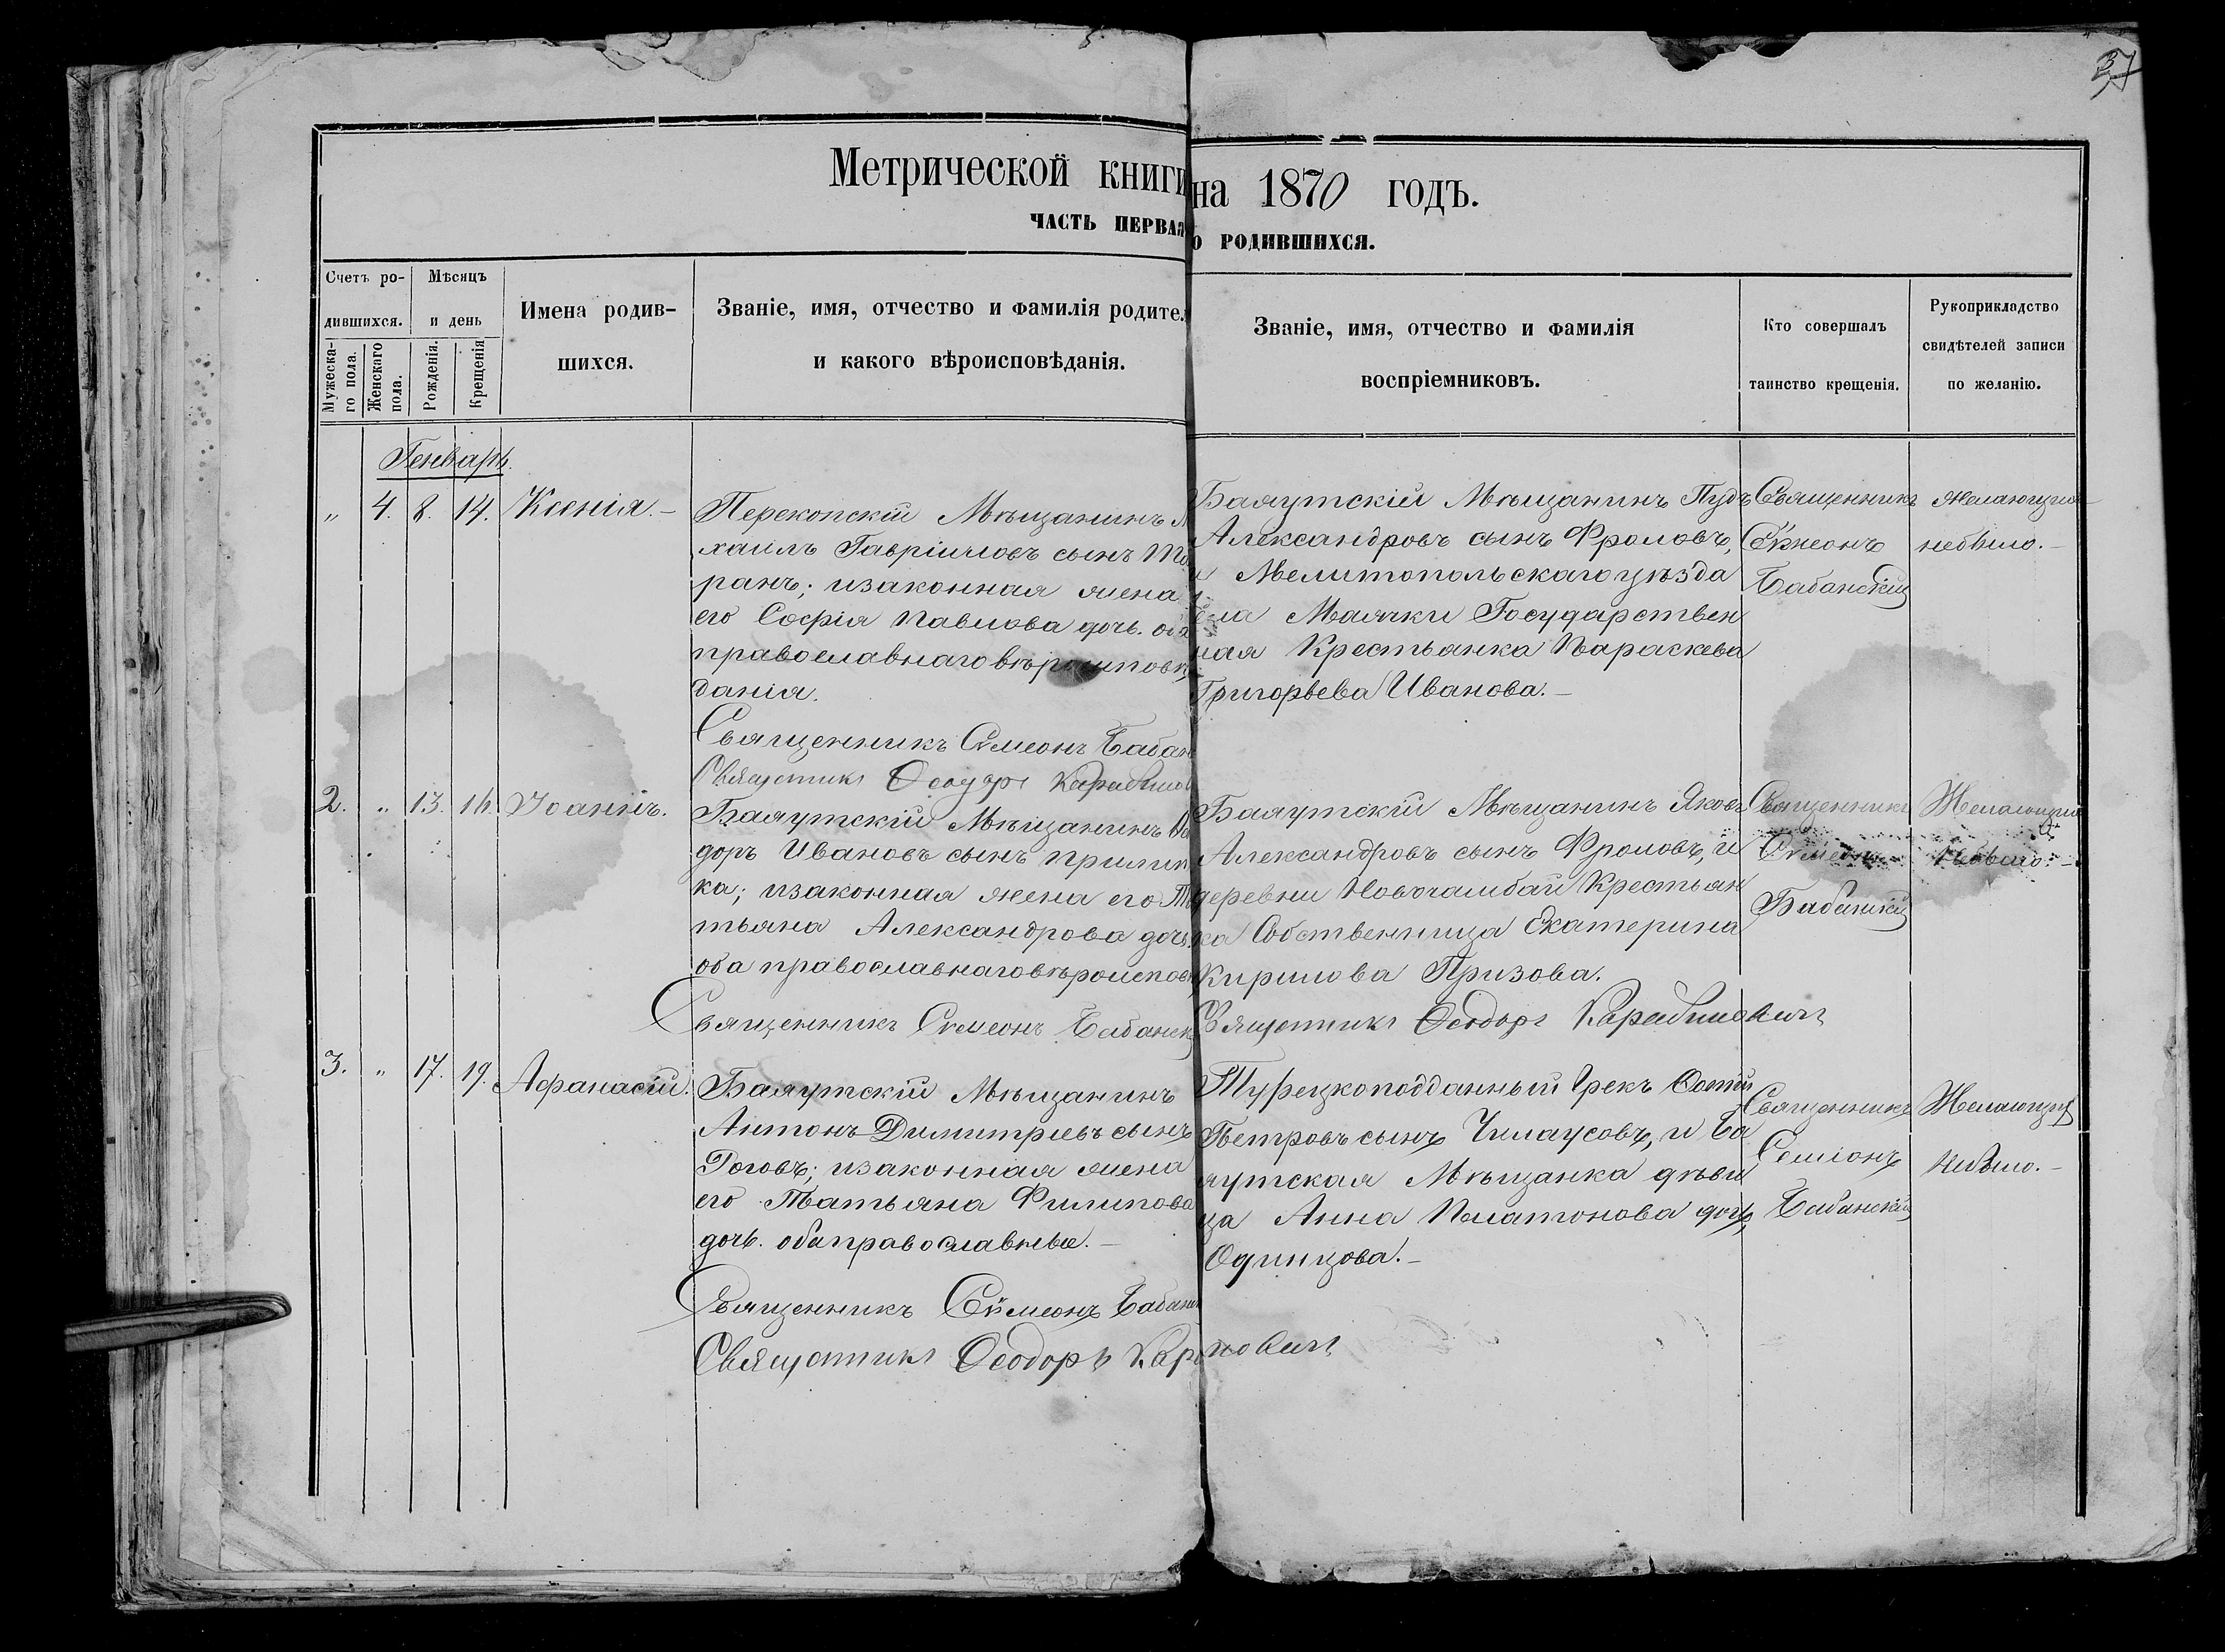 37
Метрической книги на 1870 годъ.
ЧАСТЬ ПЕРВАЯ О РОДИВШИХСЯ.
Счетъ ро-
дившихся.
Мужеска-
го пола.
Женскаго
пола.
Мѣсяцъ
и день
Рожденія.
Крещенія
Имена родив-
шихся.
Званіе, имя, отчество и фамилія родител
и какого вѣроисповѣданія.
Званіе, имя, отчество и фамилія
воспріемниковъ.
Кто совершалъ
таинство крещенія.
Рукоприкладство
свидѣтелей записи
по желанію.
Генварь.
„ 4. 8. 14. Ксенія.-
Перекопскій Мѣщанинъ
хаилъ Гавріиловъ сынъ
ранъ; изаконная жена
его Софія Павлова дочь. оба
православнаго вѣроисповѣ
данія.
Священникъ Сѵмеонъ Бабан
Священникъ Ѳеодоръ
Баяутскій Мѣщанинъ Пудъ
Александровъ сынъ Фроловъ,
и Мелитопольскаго уѣзда
села Маячки Государствен
ная Крестьянка Параскева
Григорьева Иванова.-
Священникъ
Сѵмеонъ
Бабанскій
желающихъ
небыло.-
2. „ 13. 14. Іоаннъ.
Баяутскій Мѣщанинъ
доръ Ивановъ сынъ
ка; изаконная жена его Та
тьяна Александрова дочь.
оба православнаго вѣроиспов
Священникъ Сѵмеонъ Бабанск
Баяутскій Мѣщанинъ Яковъ
Александровъ сынъ Фроловъ, и
деревни Крестьян
ка Собственница Екатерина
Кирилова Призова.
Священникъ Ѳеодоръ
Священникъ
Сѵмеонъ
Бабанскій
Желающихъ
небыло.-
3. „ 17. 19. Афанасій.
Баяутскій Мѣщанинъ
Антонъ Димитріевъ сынъ
Роговъ; изаконная жена
его Татьяна Филипова
дочь. оба православные.-
Священникъ Сѵмеонъ Бабан
Священникъ Ѳеодоръ
Турецкоподданный Грекъ
Петровъ сынъ Чилаусовъ, и Ба
яутская Мѣщанка дѣви
ца Анна Платонова дочь,
Одинцова.-
Священникъ
Семіонъ
Бабанскій
Желающихъ
небыло.-